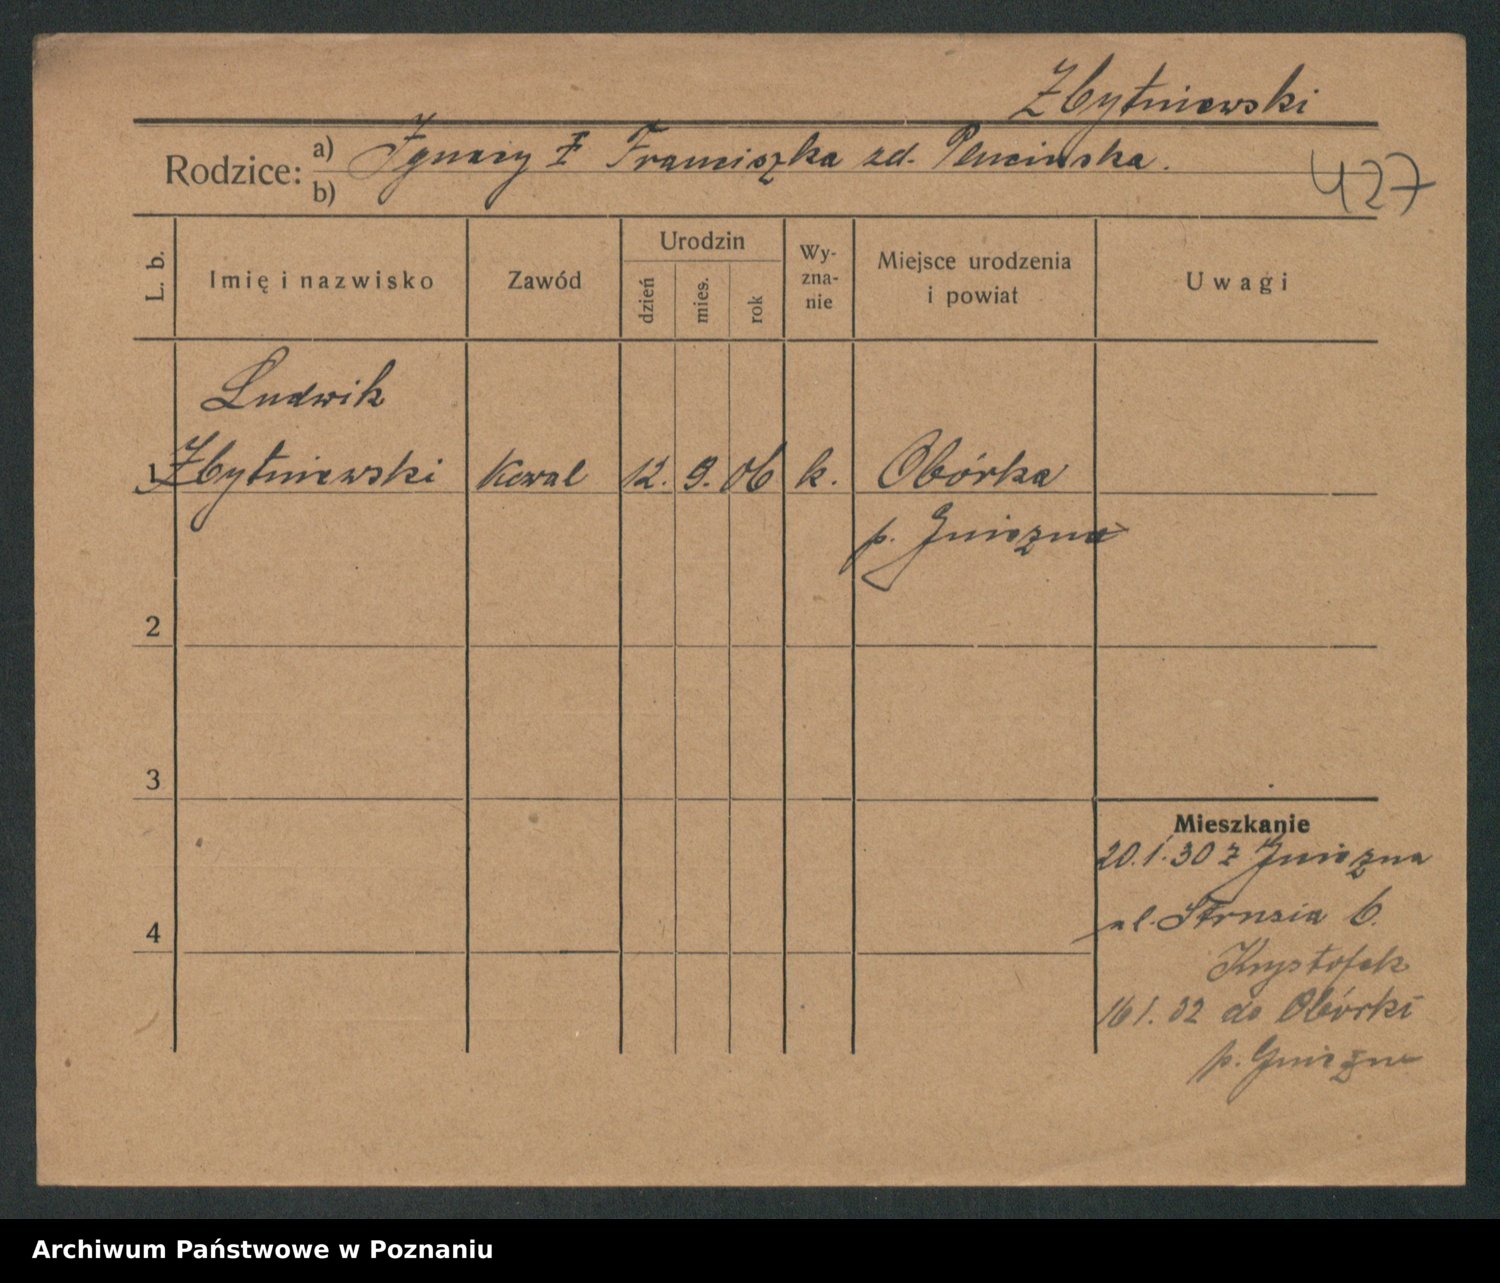 Zbytniewski
Rodzice: a) Ignacy i Franciszka zd. Plucinska.
b)
427
L. b.
Imię i nazwisko
Zawód
Urodzin
dzień
mies.
rok
Wy-
zna-
nie
Miejsce urodzenia
i powiat
Uwagi
Ludwik
1 Zbytniewski Kowal 12. 9. 06 k. Obórka
p. Gniezno
2
3
4
Mieszkanie
20.1.30 z Gniezna
ul. Strusia 6.
Krystofek
16 1. 32 do Obórki
p. Gniezno
Archiwum Państwowe w Poznaniu